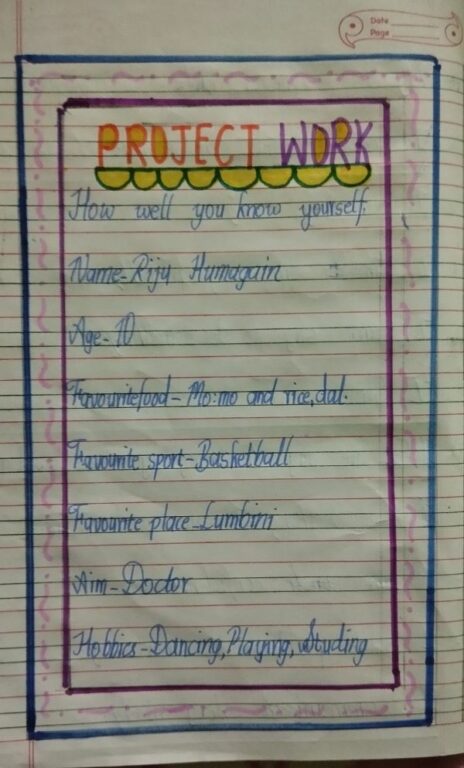 Date
Page
PROJECT WORK
How well you know yourself.
Name-Riju Humagain
Age-10
Favouritefood-Mo:mo and rice,dal.
Favourite sport-Basketball
Favourite place-Lumbini
Aim-Doctor
Hobbies-Dancing,Playing,Studing